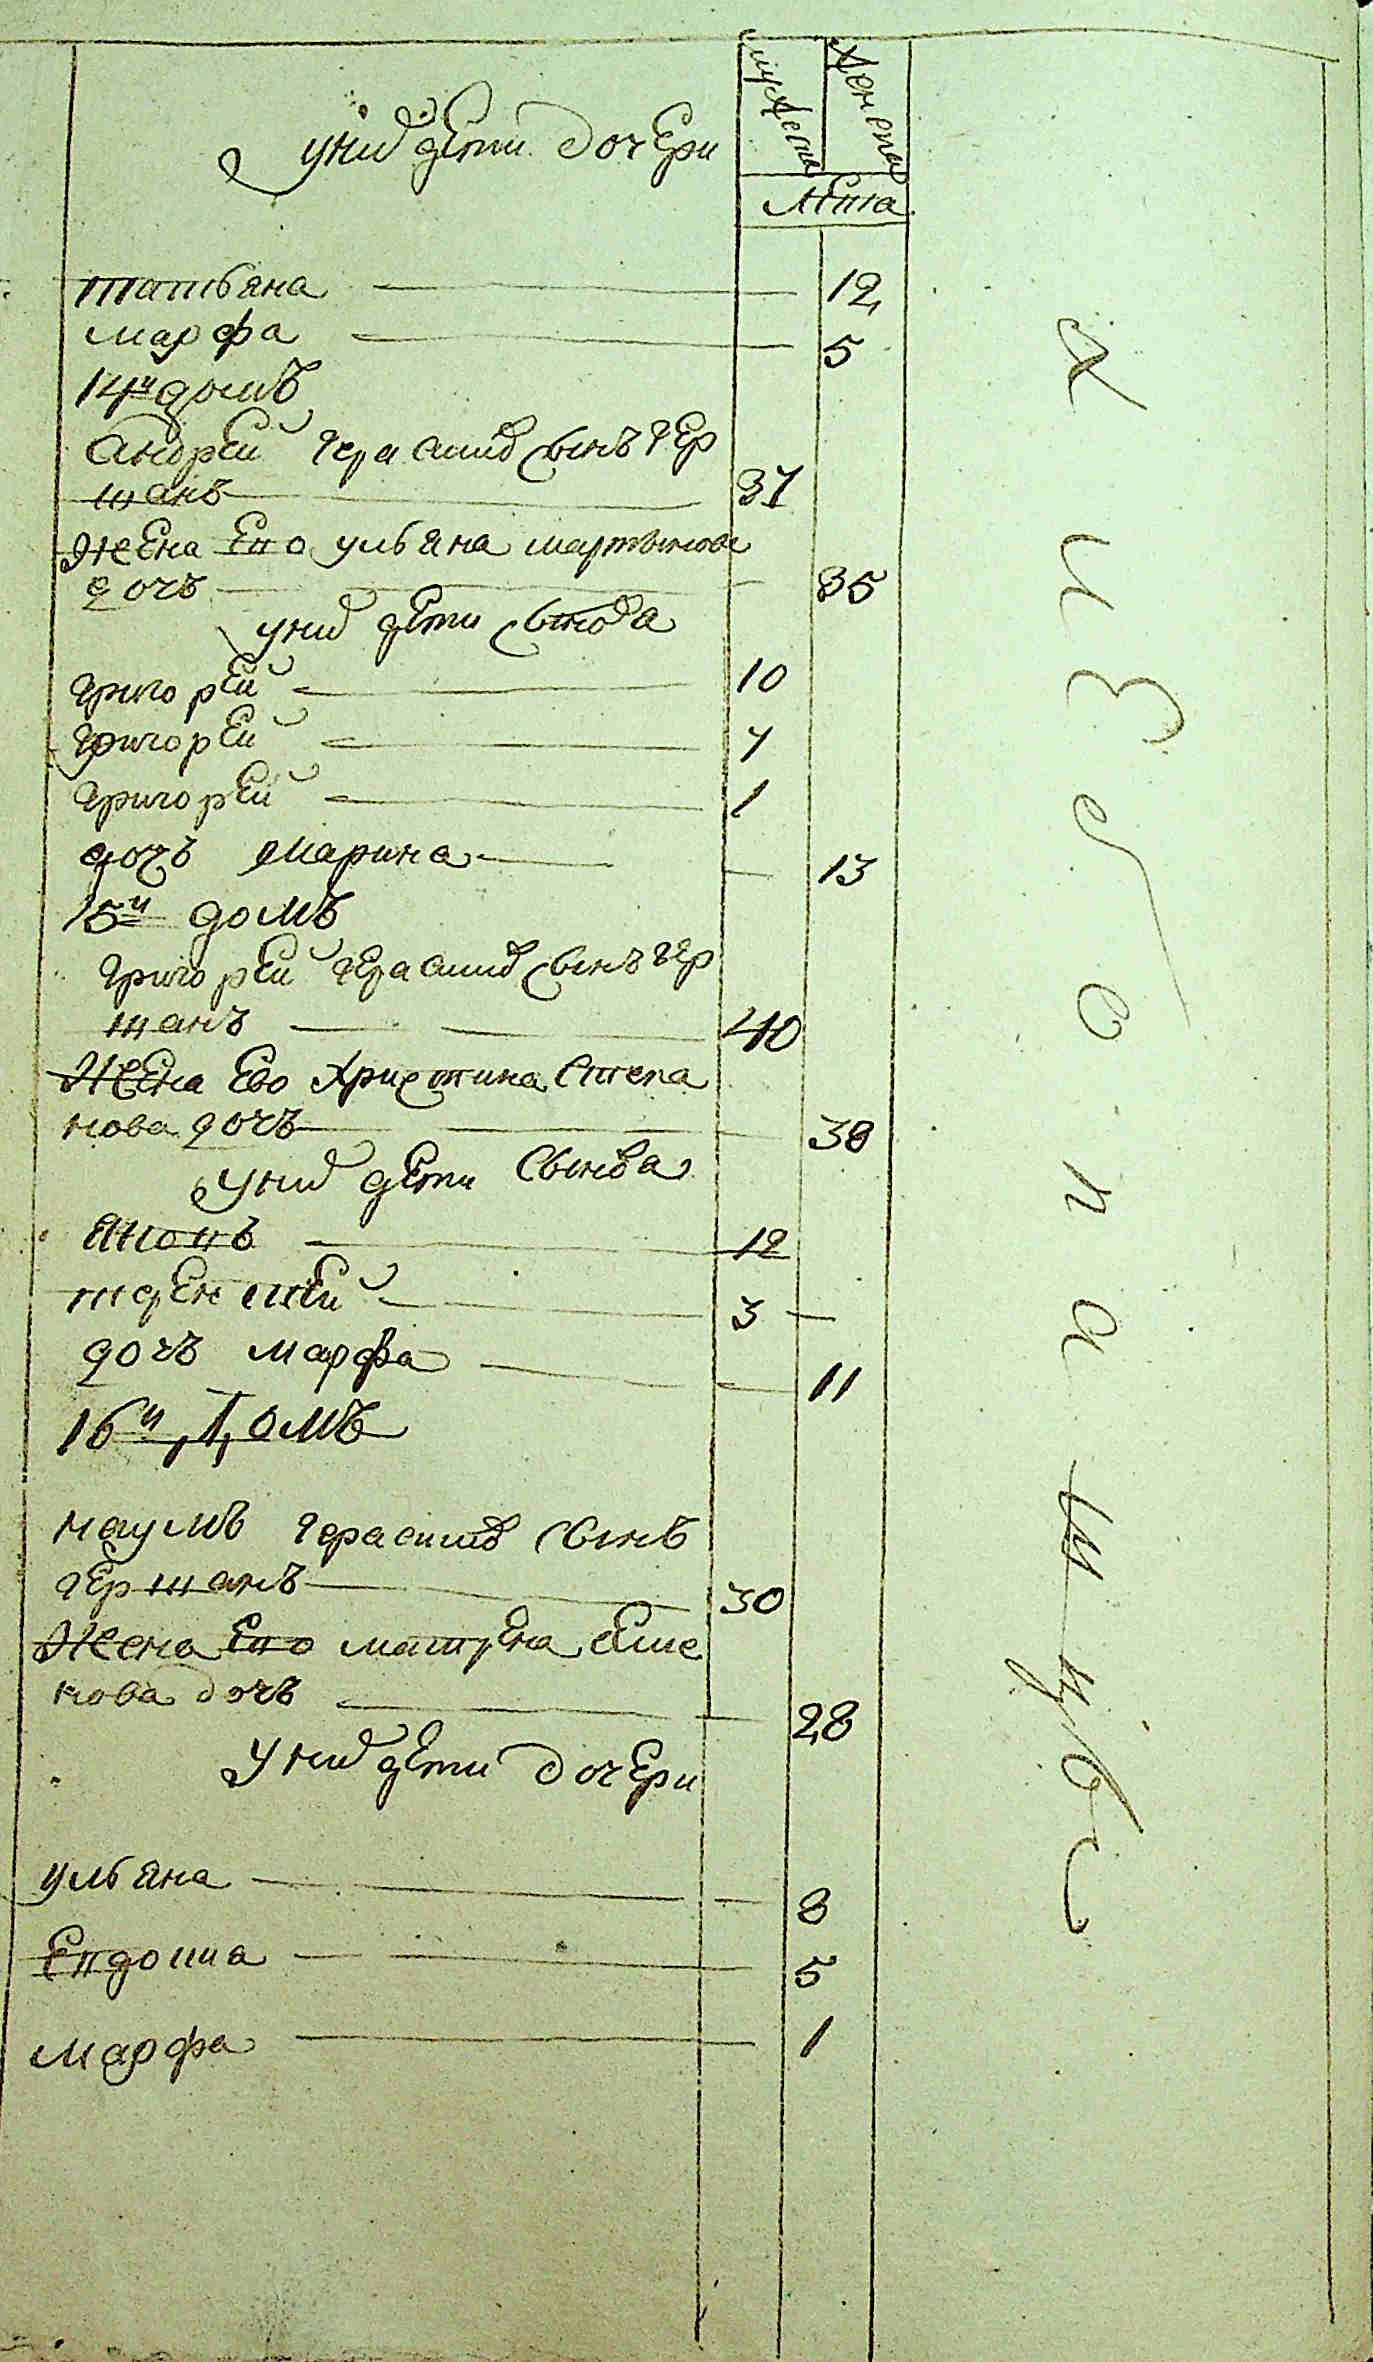 у них дети дочери
мужеска
женска
лета
татьяна 12
марфа 5
14й домъ
андрей герасимов сынъ гер
шанъ 37
жена ево ульяна мартынова
дочь 35
у них дети сынова
григорей 10
григорей 7
григорей 1
дочь марина 13
15й домъ
григорей герасимов сынъ гер
шанъ 40
жена ево христина степа
нова дочь 38
у них дети сынова
12
терентей 3
дочь марфа 11
16й домъ
наумъ герасимов сынъ
гершанъ 30
жена ево матрена семе
нова дочь 28
у них дети дочери
ульяна 8
евдошиа 5
марфа 1